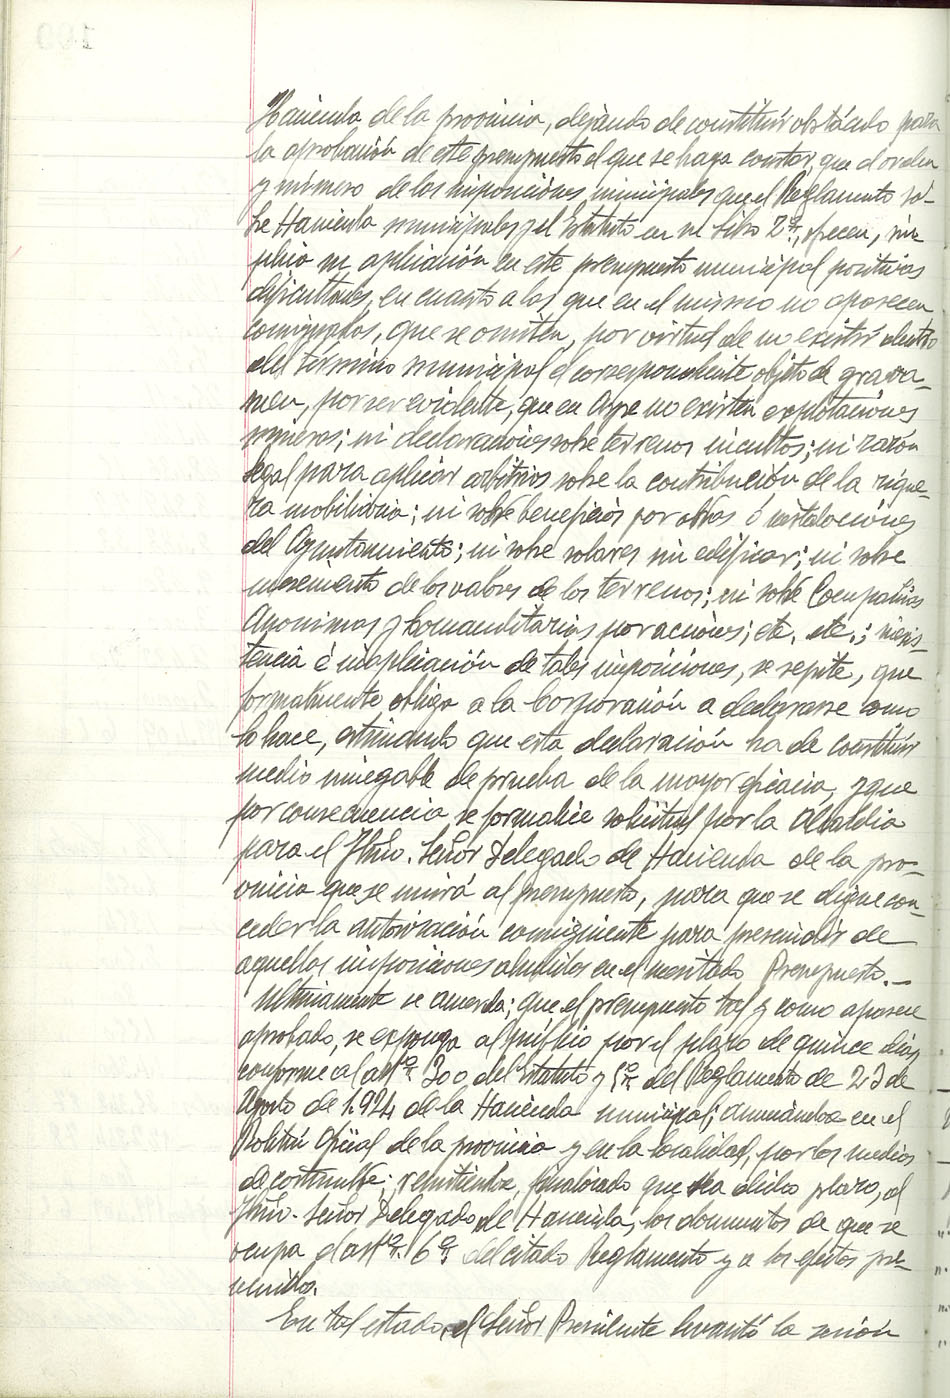 Hacienda de la provincia, dejando de constituir obstáculo para
la aprobación de este presupuesto el que se haga constar, que el orden
y número de las imposiciones municipales que el Reglamento so-
bre Hacienda municipal y el Estatuto en su Libro 2º, ofrecen, im-
plica su aplicación en este presupuesto municipal positivas
dificultades, en cuanto a las que en el mismo no aparecen
consignadas, que se omiten, por virtud de no existir dentro
del término municipal el correspondiente objeto de grava-
men, por ser evidente, que en Aspe no existen explotaciones
mineras; ni declaraciones sobre terrenos incultos; ni razón
legal para aplicar arbitrios sobre la contribución de la rique-
za mobiliaria; ni sobre beneficios por obras ó instalaciones
del Ayuntamiento; ni sobre solares sin edificar; ni sobre
incremento de los valores de los terrenos; ni sobre Compañias
Anonimas y Comanditarias por acciones; etc. etc.; inexis-
tencia é inaplicación de tales imposiciones, se repite, que
formalmente obliga a la Corporación a declararse como
lo hace, estimando que esta declaración ha de constituir
medio innegable de prueba de la mayor eficacia, y que
por consecuencia se formalice solicitud por la Alcaldia
para el Iltmo. Señor Delegado de Hacienda de la pro-
vincia que se unirá al presupuesto, para que se digne con-
ceder la autorización consiguiente para prescindir de
aquellas imposiciones aludidas en el mentado Presupuesto.—
Ultimamente se acuerda; que el presupuesto tal y como aparece
aprobado, se exponga al público por el plazo de quince días
conforme al artº. 300 del Estatuto y 5º. del Reglamento de 23 de
Agosto de 1.924 de la Hacienda municipal; anunciandose en el
Boletín Oficial de la provincia y en la localidad, por los medios
de costumbre; remitiendose, finalizado que sea dicho plazo, al
Iltmo. Señor Delegado de Hacienda, los documentos de que se
ocupa el artº. 6º. del citado Reglamento y a los efectos pre-
venidos.
En tal estado, el Señor Presidente levantó la sesión